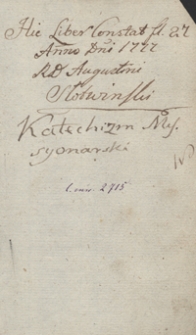 Hic Liber Constat fl. 27
Anno Dni 1777
RD Augustini
Slotwinski
Katechizm Mis.
syonarski
l. inw. 2715